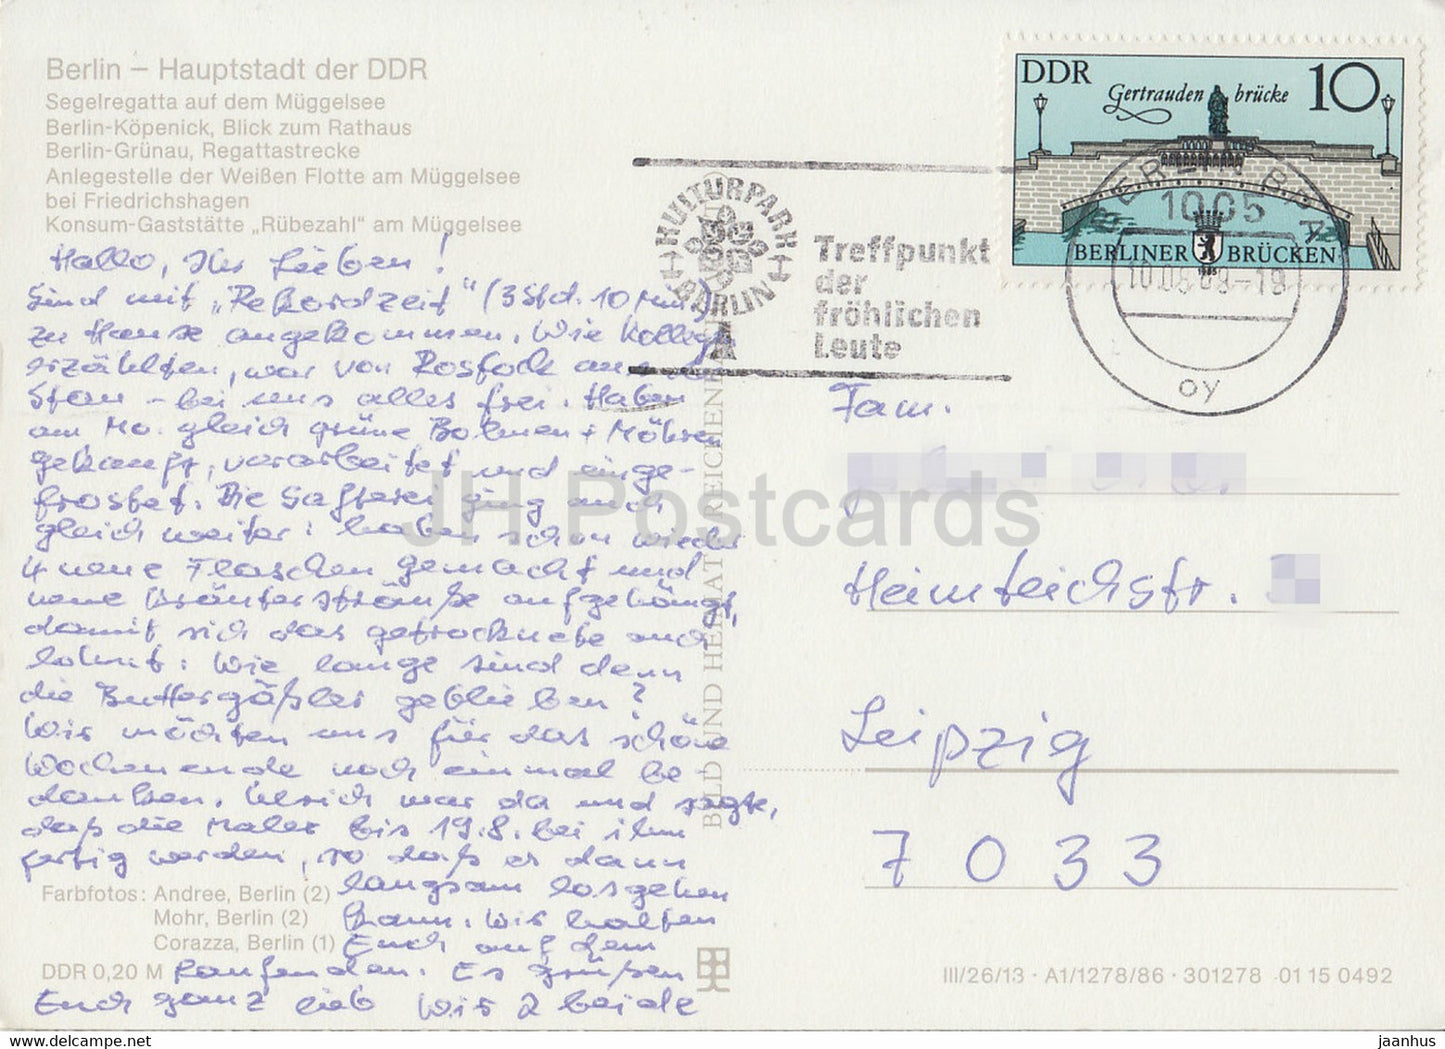 Berlin – Hauptstadt der DDR
Segelregatta auf dem Müggelsee
Berlin-Köpenick, Blick zum Rathaus
Berlin-Grünau, Regattastrecke
Anlegestelle der Weißen Flotte am Müggelsee
bei Friedrichshagen
Konsum-Gaststätte „Rübezahl“ am Müggelsee
Hallo, Ihr Lieben!
Sind mit „Rekordzeit“ (3 Std. 10 Min.)
zu Hause angekommen. Wie Kollegen
erzählten, war von Rostock aus
Stau – bei uns alles frei. Haben
am Mo. gleich grüne Bohnen + Möhren
gekauft, verarbeitet und einge-
frostet. Die Safterei ging auch
gleich weiter: haben schon wieder
4 neue Flaschen gemacht und
neue Kräutersträuße aufgehängt,
damit sich das getrocknete auch
lohnt: Wie lange sind denn
die Buttergäßler geblieben?
Wir möchten uns für das schöne
Wochenende noch einmal be-
danken. Ulrich war da und sagte,
daß die Maler bis 19.8. bei ihm
fertig werden, so daß er dann
langsam losgehen
kann. Wir halten
Euch auf dem
Laufenden. Es grüßen
Euch ganz lieb Wir 2 beide
Farbfotos: Andree, Berlin (2)
Mohr, Berlin (2)
Corazza, Berlin (1)
DDR 0,20 M
BILD UND HEIMAT REICHENBA
KULTURPARK
BERLIN
Treffpunkt
der
fröhlichen
Leute
DDR
Gertrauden brücke
10
BERLINER BRÜCKEN
1985
BERLIN
1085
oy
Fam.
Heimteichstr.
Leipzig
7033
III/26/13 · A1/1278/86 · 301278 01 15 0492
JH Postcards
www.hipostcard.com
jaanhus